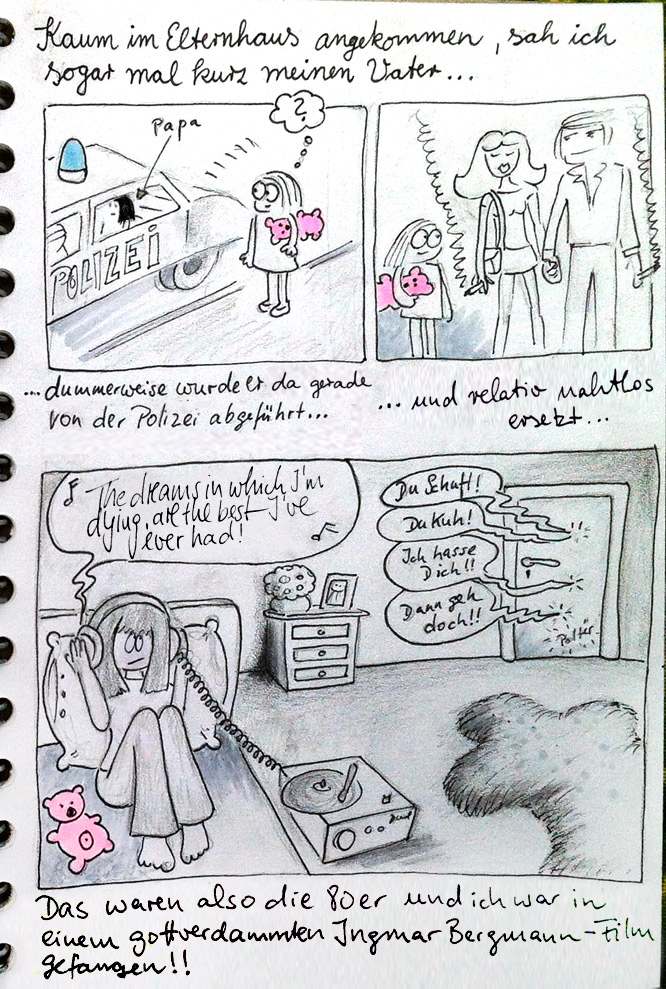 Kaum im Elternhaus angekommen, sah ich
sogar mal kurz meinen Vater...
?
Papa
POLIZEI
...dummerweise wurde er da gerade
von der Polizei abgeführt...
... und relativ nahtlos
ersetzt...
The dreams in which I'm
dying, are the best I've
ever had!
Du Schaf!!
Du Kuh!
Ich hasse
Dich!!
Dann geh
doch!!
Polter
Dual
Das waren also die 80er und ich war in
einem gottverdammten Ingmar Bergmann-Film
gefangen!!